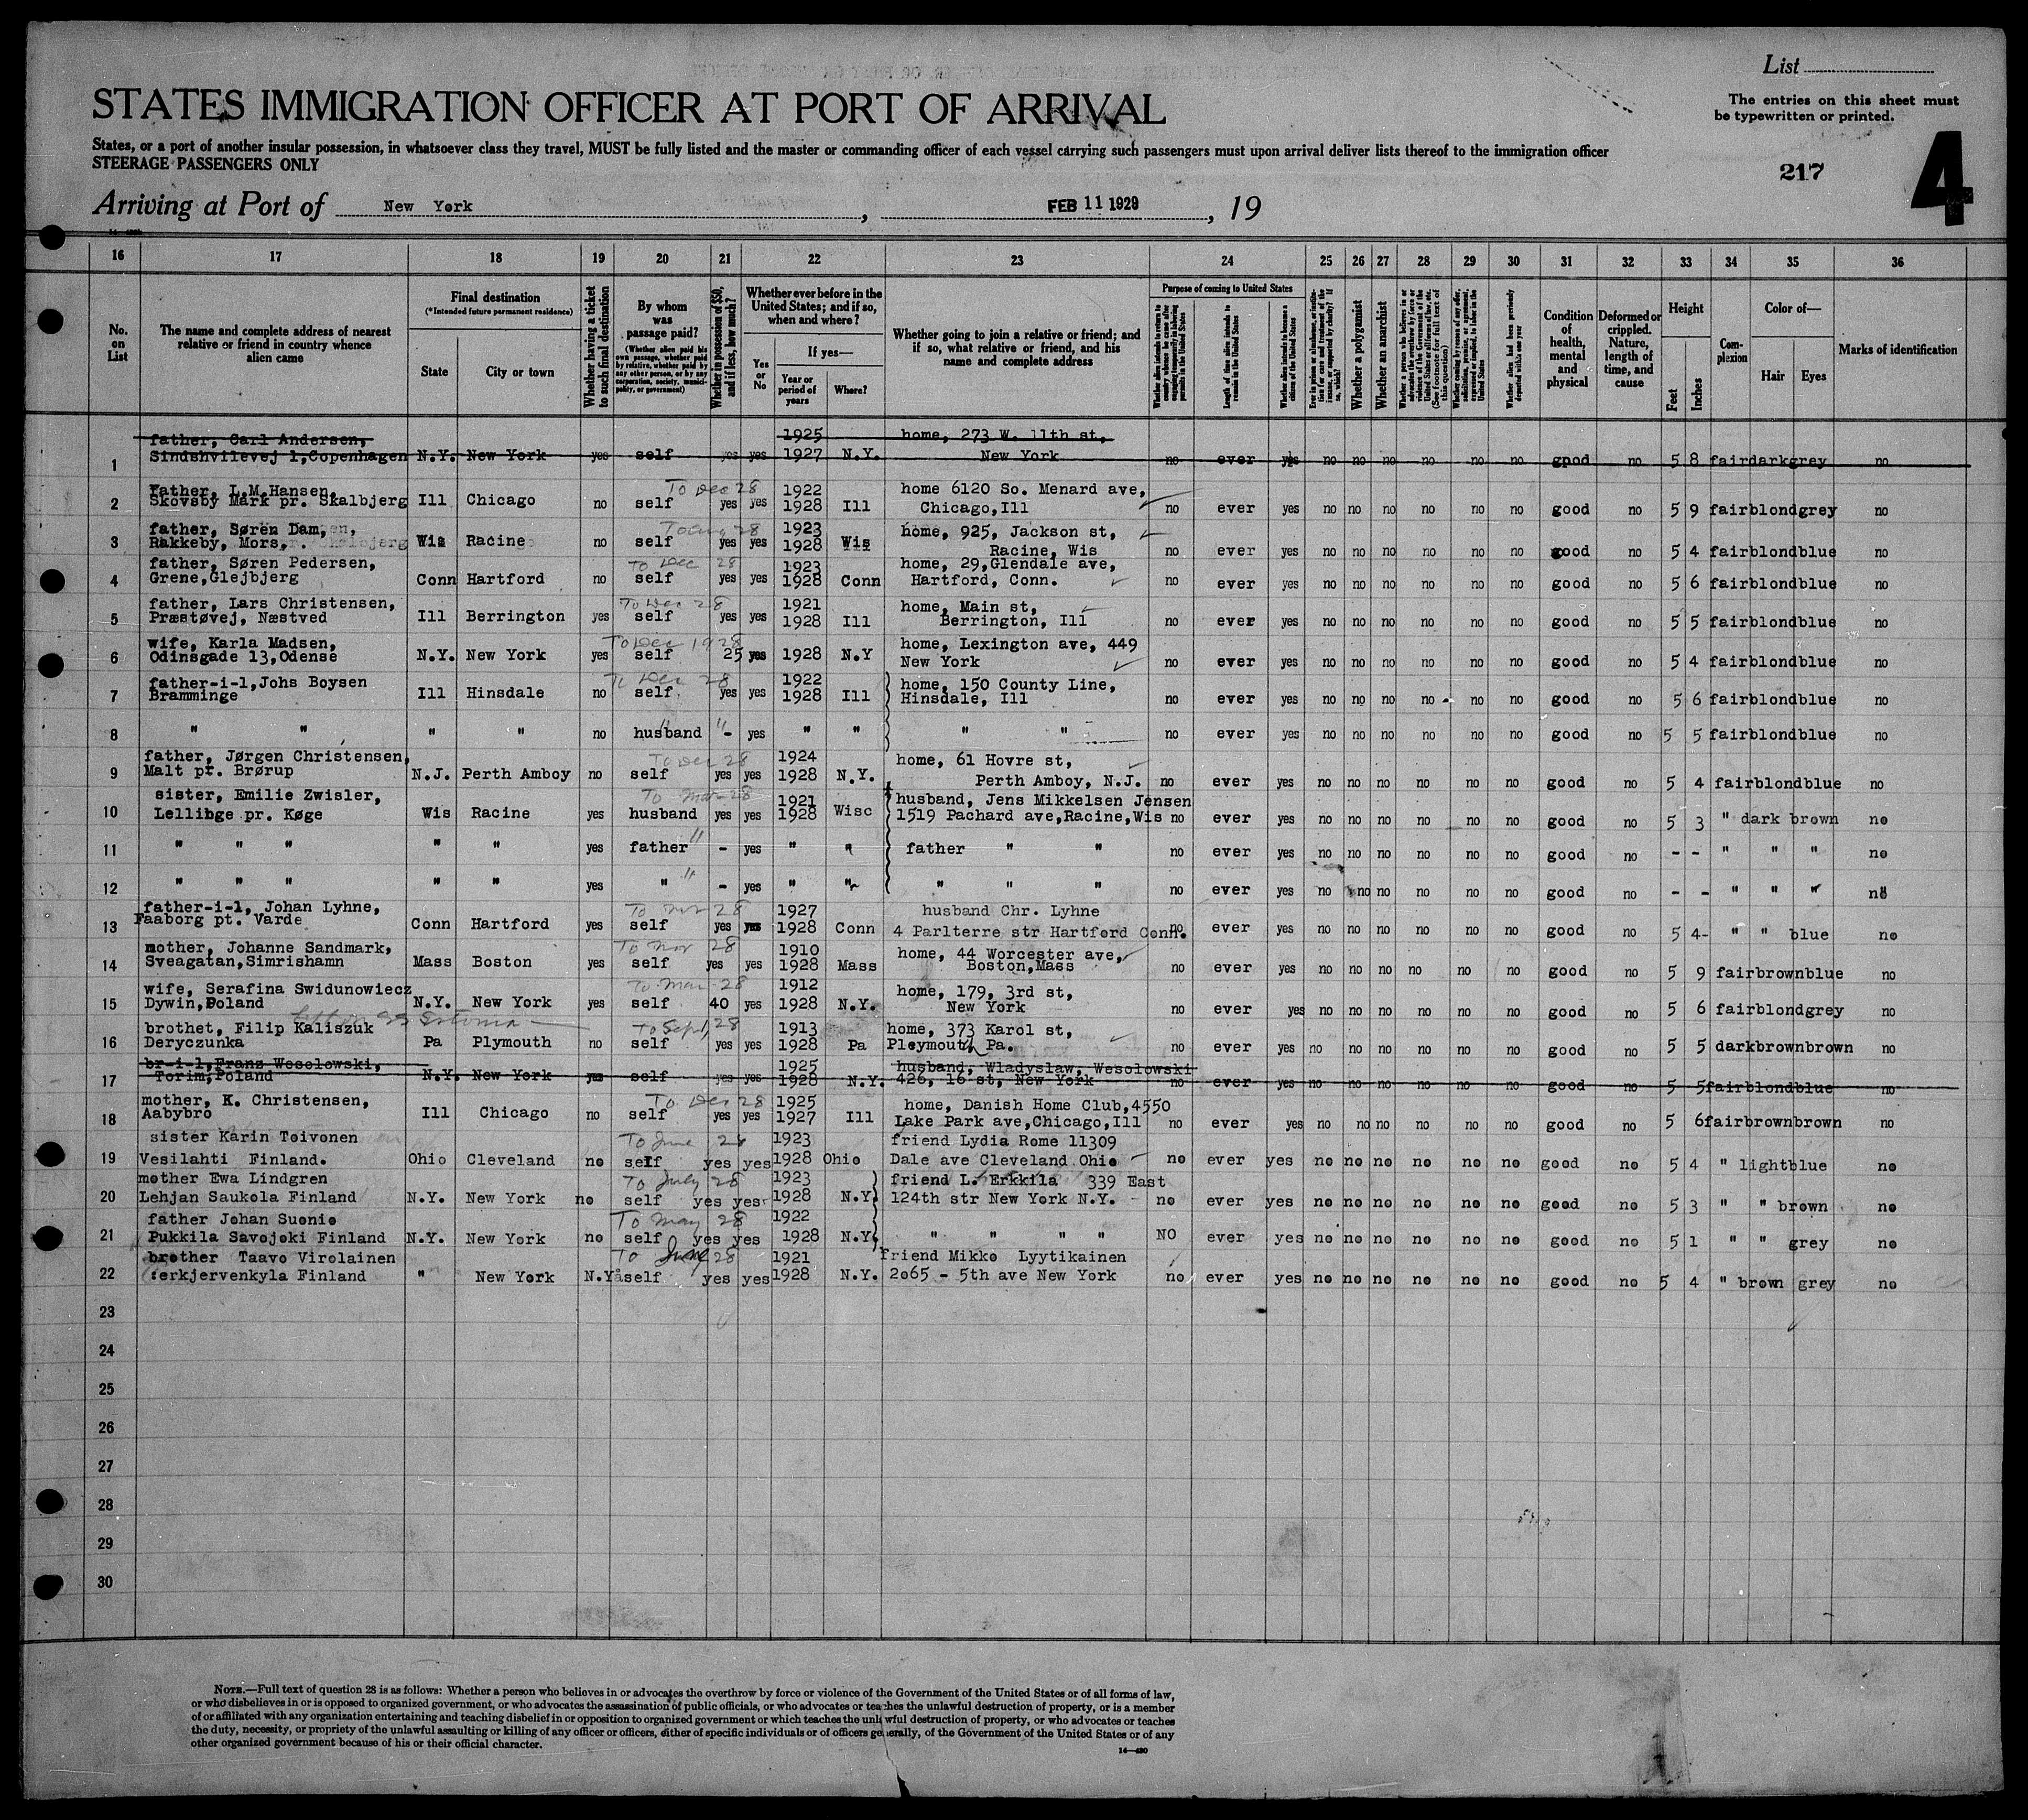 List
STATES IMMIGRATION OFFICER AT PORT OF ARRIVAL
The entries on this sheet must
be typewritten or printed.
States, or a port of another insular possession, in whatsoever class they travel, MUST be fully listed and the master or commanding officer of each vessel carrying such passengers must upon arrival deliver lists thereof to the immigration officer
STEERAGE PASSENGERS ONLY
217
4
Arriving at Port of New York, FEB 11 1929, 19
16 17 18 19 20 21 22 23 24 25 26 27 28 29 30 31 32 33 34 35 36
No. on List
The name and complete address of nearest relative or friend in country whence alien came
Final destination
(*Intended future permanent residence)
State
City or town
Whether having a ticket to such final destination
By whom was passage paid?
(Whether alien paid his own passage, whether paid by relative, whether paid by any other person, or by any corporation, society, municipality, or government)
Whether in possession of $50, and if less, how much?
Whether ever before in the United States; and if so, when and where?
Yes or No
If yes—
Year or period of years
Where?
Whether going to join a relative or friend; and if so, what relative or friend, and his name and complete address
Purpose of coming to United States
Length of time alien intends to remain in the United States
Whether alien intends to become a citizen of the United States
Whether a polygamist
Whether an anarchist
Condition of health, mental and physical
Deformed or crippled. Nature, length of time, and cause
Height
Feet
Inches
Complexion
Color of—
Hair
Eyes
Marks of identification
father, Carl Andersen, 1925 home, 273 W. 11th st,
1 Sindshvilevej 1,Copenhagen N.Y. New York yes self yes yes 1927 N.Y. New York no ever yes no no no no no no good no 5 8 fair dark grey no
father, L.M.Hansen, To Dec 28 1922 home 6120 So. Menard ave,
2 Skovsby Mark pr. Skalbjerg Ill Chicago no self yes yes 1928 Ill Chicago,Ill no ever yes no no no no no no good no 5 9 fair blond grey no
father, Søren Dam, 28 1923 home, 925, Jackson st,
3 Rakkeby, Mors, Wis Racine no self yes yes 1928 Wis Racine, Wis no ever yes no no no no no no good no 5 4 fair blond blue no
father, Søren Pedersen, To Dec 28 1923 home, 29,Glendale ave,
4 Grene,Glejbjerg Conn Hartford no self yes yes 1928 Conn Hartford, Conn. no ever yes no no no no no no good no 5 6 fair blond blue no
father, Lars Christensen, To Dec 28 1921 home, Main st,
5 Præstøvej, Næstved Ill Berrington yes self yes yes 1928 Ill Berrington, Ill no ever yes no no no no no no good no 5 5 fair blond blue no
wife, Karla Madsen, To Dec 1928 home, Lexington ave, 449
6 Odinsgade 13,Odense N.Y. New York yes self 25 yes 1928 N.Y New York no ever yes no no no no no no good no 5 4 fair blond blue no
father-i-l,Johs Boysen To Dec 28 1922 home, 150 County Line,
7 Bramminge Ill Hinsdale no self. yes yes 1928 Ill Hinsdale, Ill no ever yes no no no no no no good no 5 6 fair blond blue no
8 " " " " no husband " - yes " " " " no ever yes no no no no no no good no 5 5 fair blond blue no
father, Jørgen Christensen, To Dec 28 1924 home, 61 Hovre st,
9 Malt pr. Brørup N.J. Perth Amboy no self yes yes 1928 N.Y. Perth Amboy, N.J. no ever yes no no no no no no good no 5 4 fair blond blue no
sister, Emilie Zwisler, To Mar 28 1921 husband, Jens Mikkelsen Jensen
10 Lellinge pr. Køge Wis Racine yes husband yes yes 1928 Wisc 1519 Pachard ave,Racine,Wis no ever yes no no no no no no good no 5 3 " dark brown no
11 " " " " " yes father " - yes " " father " " no ever yes no no no no no no good no - - " " " no
12 " " " " " yes " " - yes " " " " " no ever yes no no no no no no good no - - " " " no
father-i-l, Johan Lyhne, To 28 1927 husband Chr. Lyhne
13 Faaborg pt. Varde Conn Hartford yes self yes yes 1928 Conn 4 Parlterre str Hartford Conn. no ever yes no no no no no no good no 5 4- " " blue no
mother, Johanne Sandmark, To Nov 28 1910 home, 44 Worcester ave,
14 Sveagatan,Simrishamn Mass Boston yes self yes yes 1928 Mass Boston,Mass no ever yes no no no no no no good no 5 9 fair brown blue no
wife, Serafina Swidunowiecz To Mar 28 1912 home, 179, 3rd st,
15 Dywin,Poland N.Y. New York yes self 40 yes 1928 N.Y. New York no ever yes no no no no no no good no 5 6 fair blond grey no
brothet, Filip Kaliszuk To Sept, 28 1913 home, 373 Karol st,
16 Deryczunka Pa Plymouth no self yes yes 1928 Pa Pleymouth Pa. no ever yes no no no no no no good no 5 5 dark brown brown no
br-i-l,Franz Wesolowski, 1925 husband, Wladyslaw, Wesolowski
17 Torim,Poland N.Y. New York yes self yes yes 1928 N.Y. 426, 16 st, New York no ever yes no no no no no no good no 5 5 fair blond blue no
mother, K. Christensen, To Dec 28 1925 home, Danish Home Club,4550
18 Aabybro Ill Chicago no self yes yes 1927 Ill Lake Park ave,Chicago,Ill no ever yes no no no no no no good no 5 6 fair brown brown no
sister Karin Toivonen To June 28 1923 friend Lydia Rome 11309
19 Vesilahti Finland. Ohio Cleveland no self yes yes 1928 Ohio Dale ave Cleveland Ohio no ever yes no no no no no no good no 5 4 " light blue no
mother Ewa Lindgren To July 28 1923 friend L. Erkkila 339 East
20 Lehjan Saukola Finland N.Y. New York no self yes yes 1928 N.Y. 124th str New York N.Y. no ever yes no no no no no no good no 5 3 " " brown no
father Johan Suonio To May 28 1922
21 Pukkila Savojoki Finland N.Y. New York no self yes yes 1928 N.Y. " " " " NO ever yes no no no no no no good no 5 1 " " grey no
brother Taavo Virolainen To June 28 1921 friend Mikko Lyytikainen
22 terkjervenkyla Finland " New York N.Y. self yes yes 1928 N.Y. 2065 - 5th ave New York no ever yes no no no no no no good no 5 4 " brown grey no
23
24
25
26
27
28
29
30
NOTE.—Full text of question 28 is as follows: Whether a person who believes in or advocates the overthrow by force or violence of the Government of the United States or of all forms of law,
or who disbelieves in or is opposed to organized government, or who advocates the assassination of public officials, or who advocates or teaches the unlawful destruction of property, or is a member
of or affiliated with any organization entertaining and teaching disbelief in or opposition to organized government or which teaches the unlawful destruction of property, or who advocates or teaches
the duty, necessity, or propriety of the unlawful assaulting or killing of any officer or officers, either of specific individuals or of officers generally, of the Government of the United States or of any
other organized government because of his or their official character.
14—420